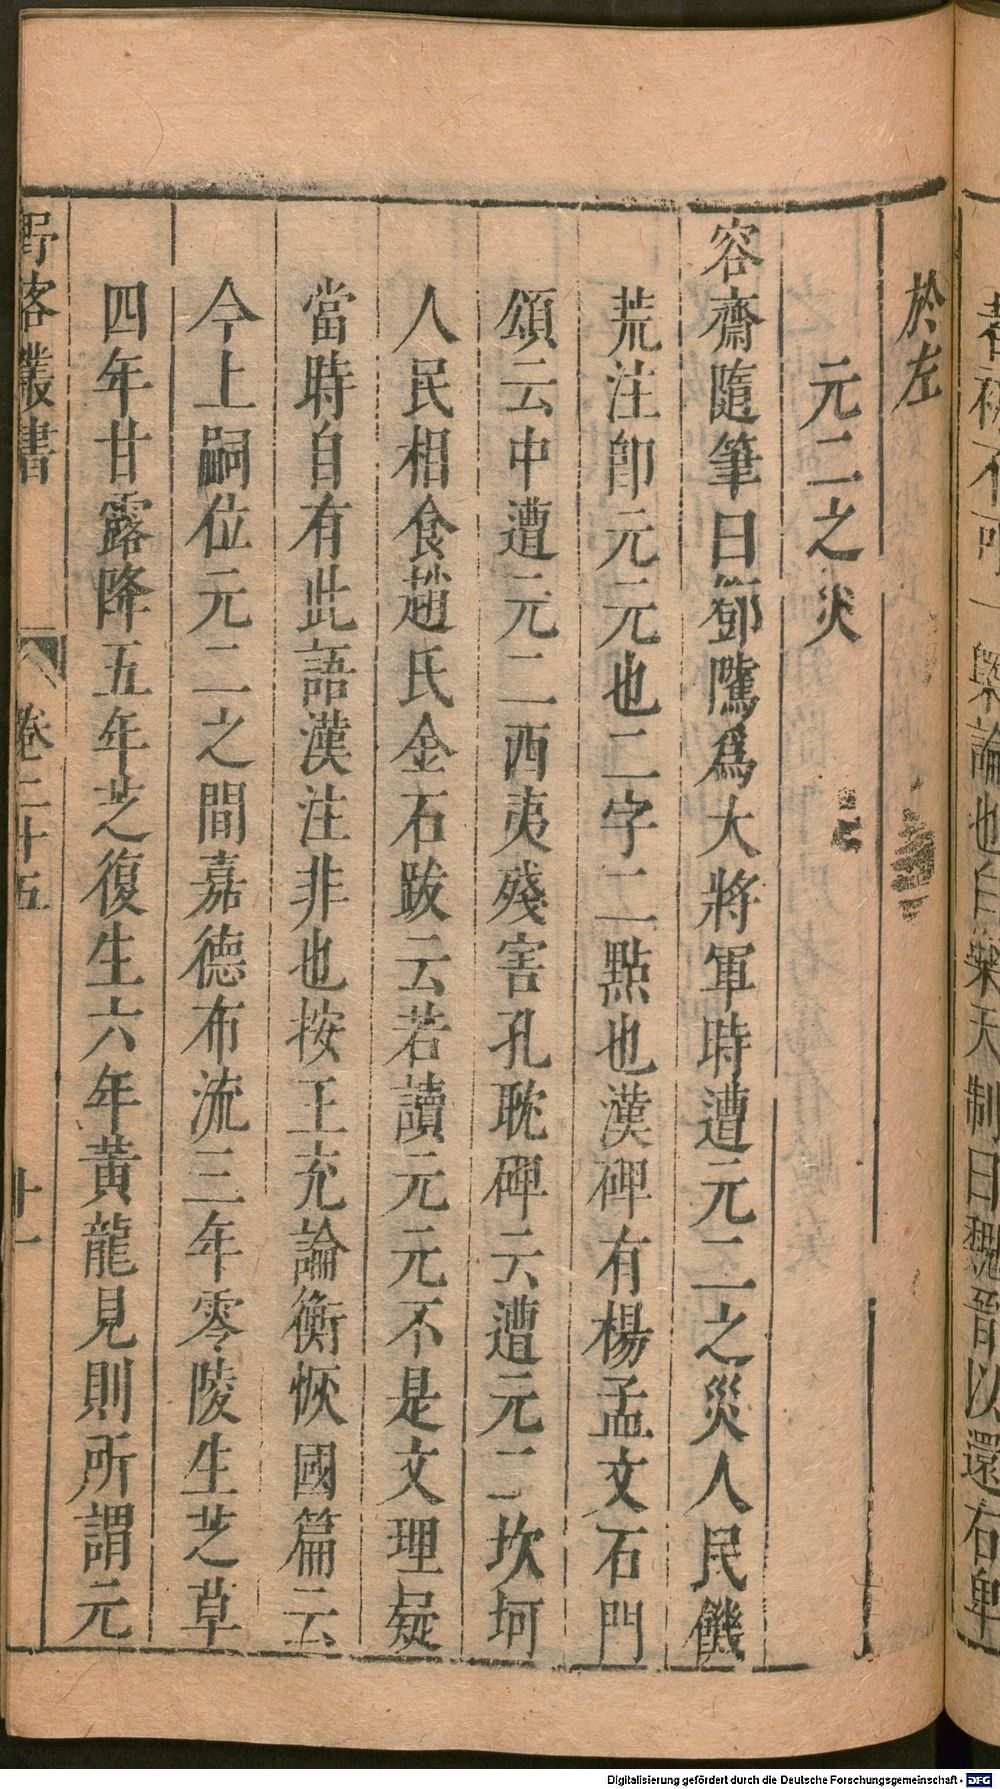 於左
元二之災
容齋隨筆曰鄧騭爲大將軍時遭元二之災人民饑
荒注卽元元也二字二點也漢碑有楊孟文石門
頌云中遭元二西夷殘害孔耽碑云遭元二坎坷
人民相食趙氏金石跋云若讀元元不是文理疑
當時自有此語漢注非也按王充論衡恢國篇云
今上嗣位元二之間嘉德布流三年零陵生芝草
四年甘露降五年芝復生六年黃龍見則所謂元
野客叢書 卷二十五 十一
論也自 天制曰魏晉以還右
Digitalisierung gefördert durch die Deutsche Forschungsgemeinschaft - DFG